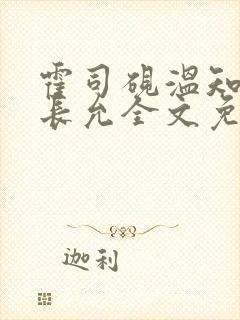 霍司砚温知
长允全文免
迦利